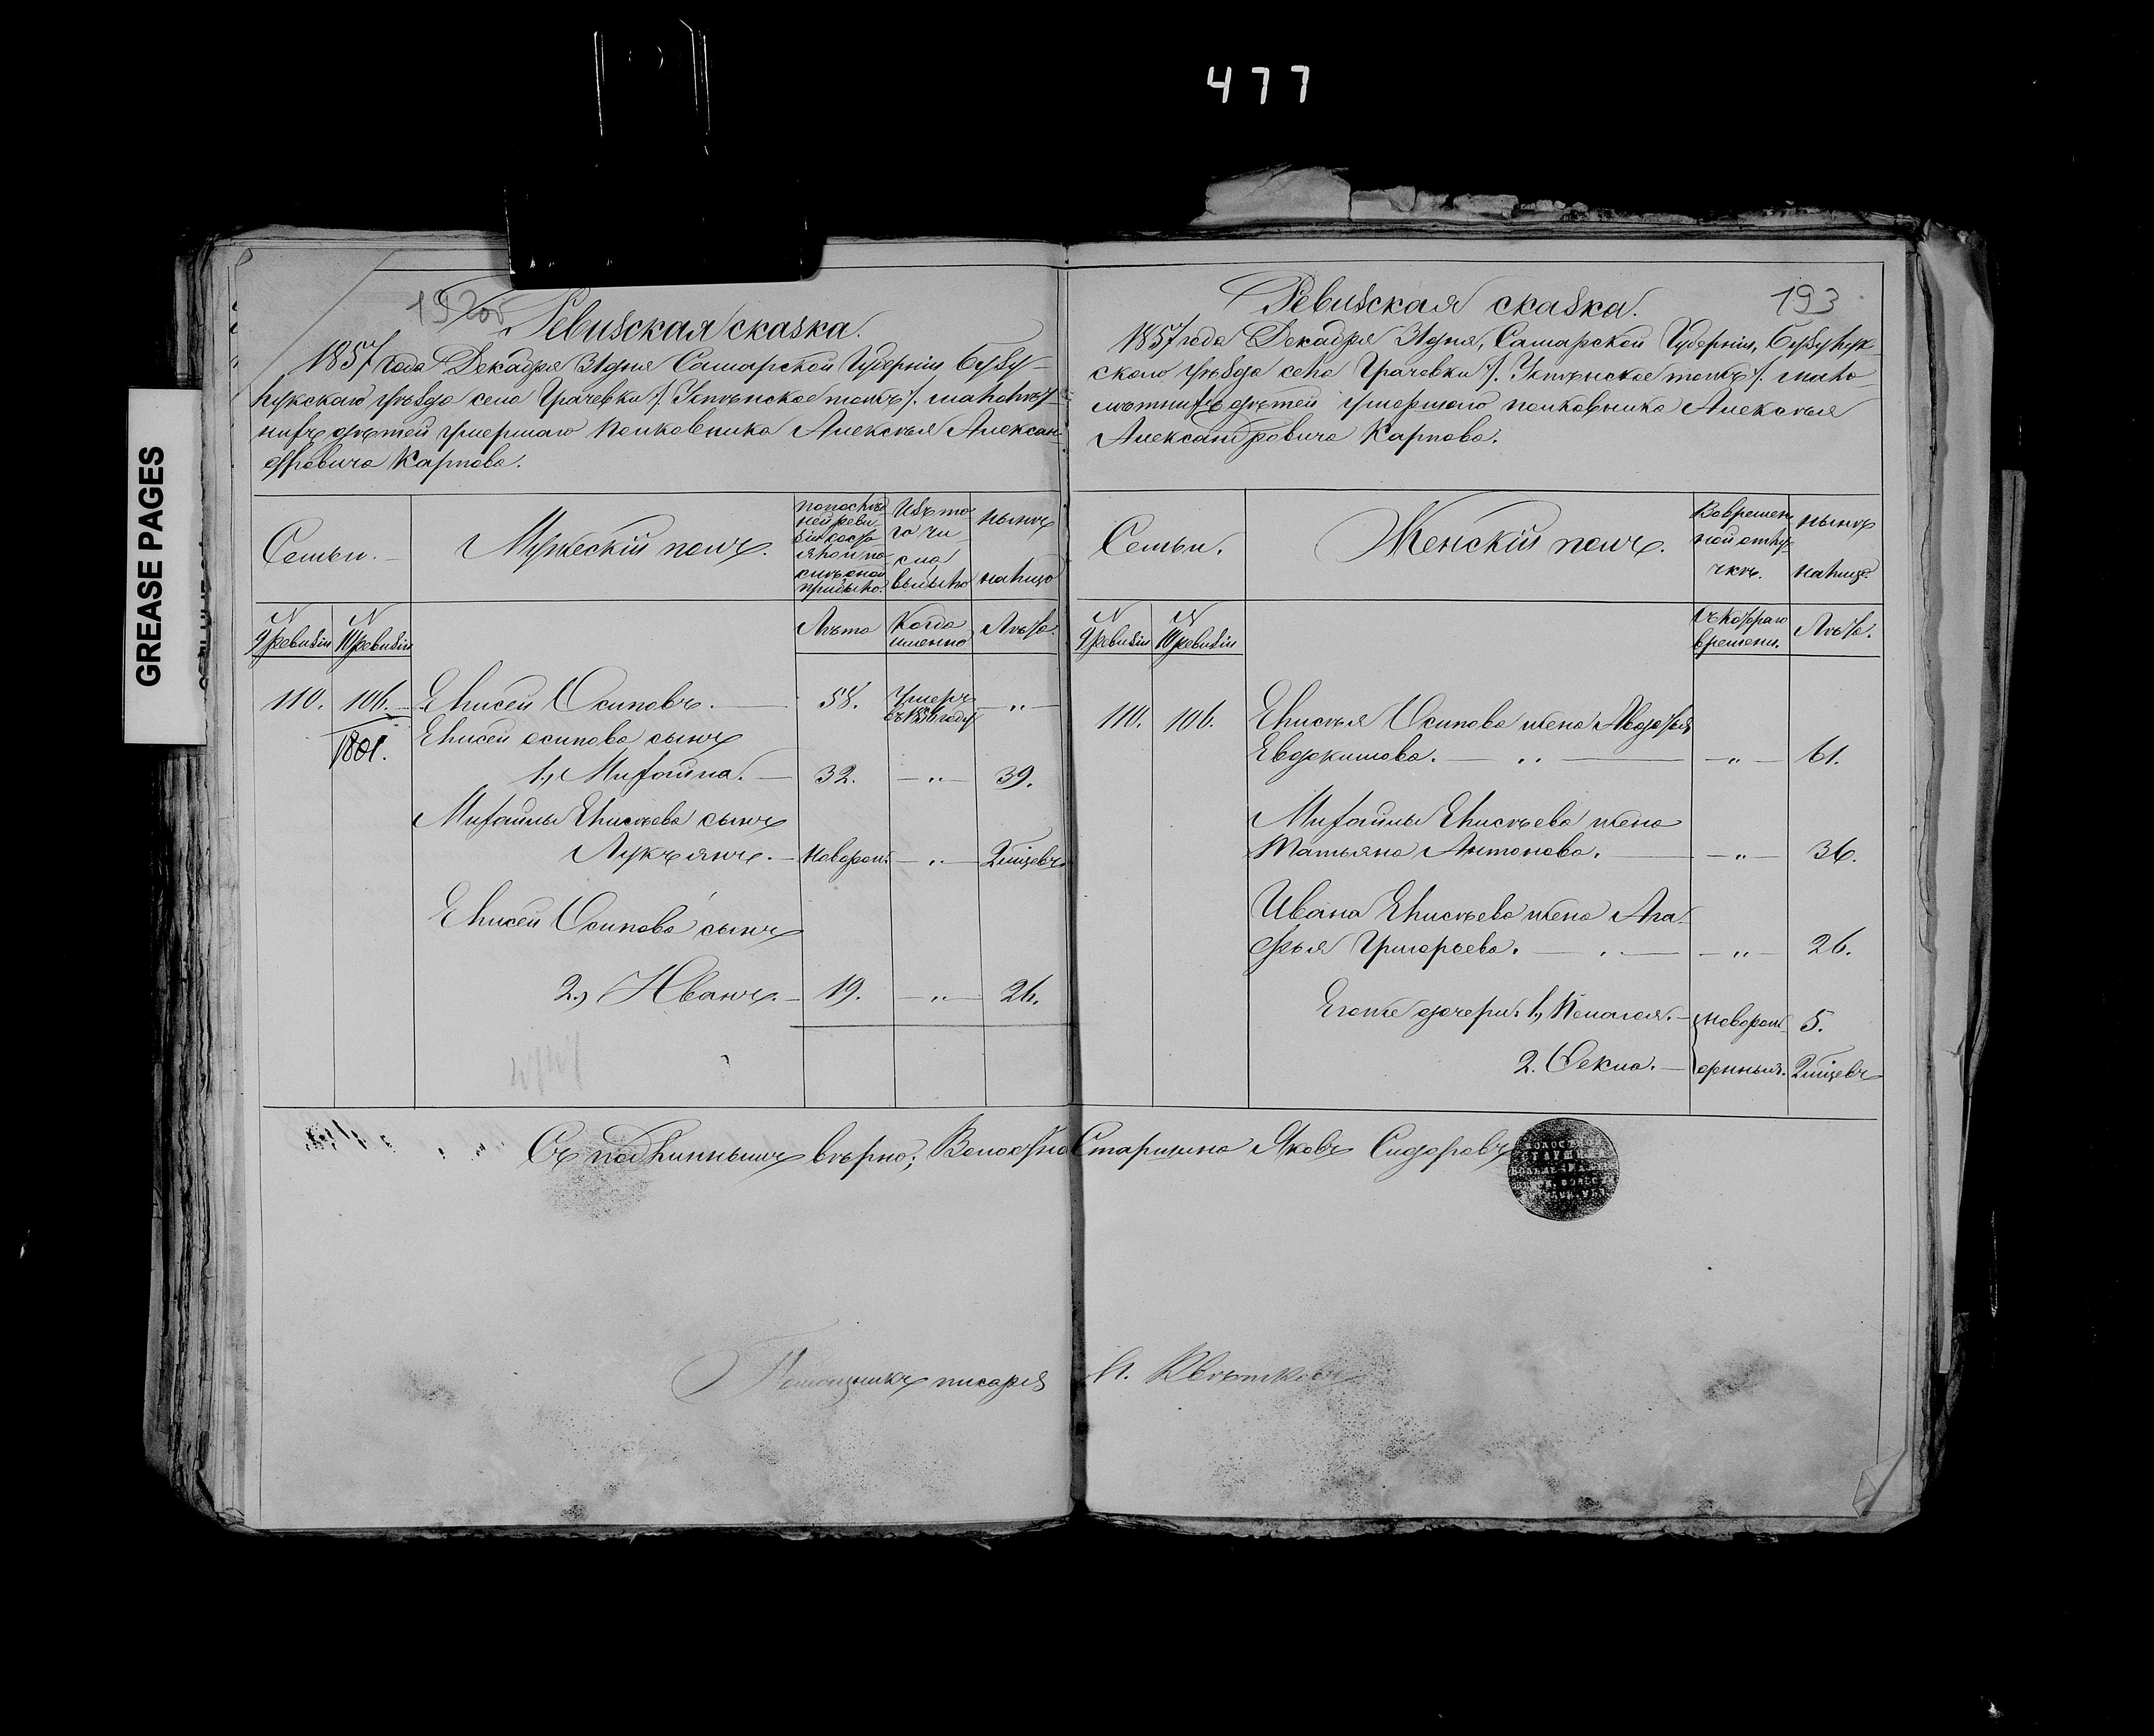 477
GREASE PAGES
192об
Ревизская сказка.
1857 года Декабря 31 дня Самарской Губерніи Бузу-
лукскаго уѣзда села Грачевки /: Успѣнское тожъ :/ малолѣт-
нихъ дѣтей умершаго полковника Алексѣя Алексан-
дровича Карпова.
Семьи.
Мужескій полъ.
По послѣд
ней реви
зіи состо
яло и по
слѣ оной
прибыло.
Изъ то
го чи
сла
выбыло
нынѣ
налицо
№
9 ревизіи
№
10 ревизіи
Лѣта
Когда
именно
Лѣта.
110. 106. Елисей Осиповъ. 58. Умеръ
въ году „
1801.
Елисея осипова сынъ
1., Михайла. 32. „ 39.
Михайлы Елисѣева сынъ
Лукъянъ. новорож. „ 2 мѣсяцевъ
Елисея Осипова сынъ
2., Иванъ. 19. „ 26.
193
Ревизская сказка.
1857 года Декабря 31 дня, Самарской Губерніи, Бузулук-
скаго уѣзда села Грачевки /: Успѣнское тожъ :/ мало-
лѣтнихъ дѣтей умершаго полковника Алексѣя
Александровича Карпова.
Семьи.
Женскій полъ.
Во времен
ной отлу
чкѣ.
нынѣ
налицо.
№
9 ревизіи
№
10 ревизіи
Съ котораго
времени.
Лѣта.
110. 106. Елисѣя Осипова жена Авдотья
Евдокимова. „ 61.
Михайлы Елисѣева жена
Татьяна Антонова. „ 36.
Ивана Елисѣева жена Ага-
фья Григорьева. „ 26.
Его же дочери. 1., Пелагея. новорож 5.
2. Фекла. денныя. 2 мѣсяцевъ
Съ подлиннымъ вѣрно; Волостно Старшина Яковъ Сидоровъ
Помощникъ писаря